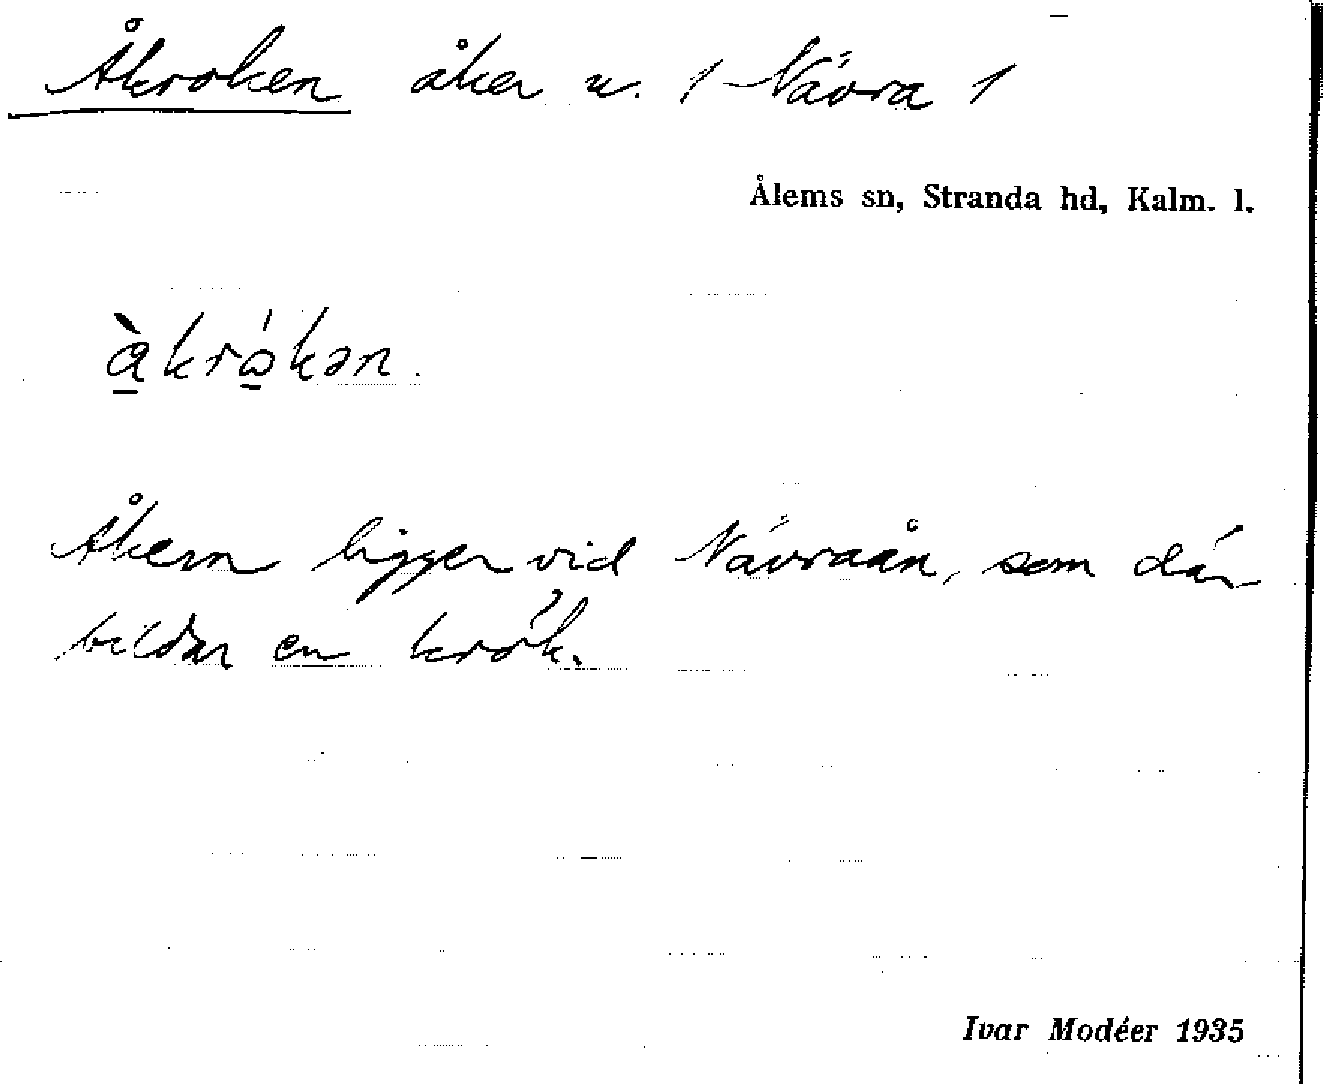 Åkroken åker u. / Nävra 1
Ålems sn, Stranda hd, Kalm. l.
àkrókən.
Åkern ligger vid Nävraån, som där
bildar en krök.
Ivar Modéer 1935